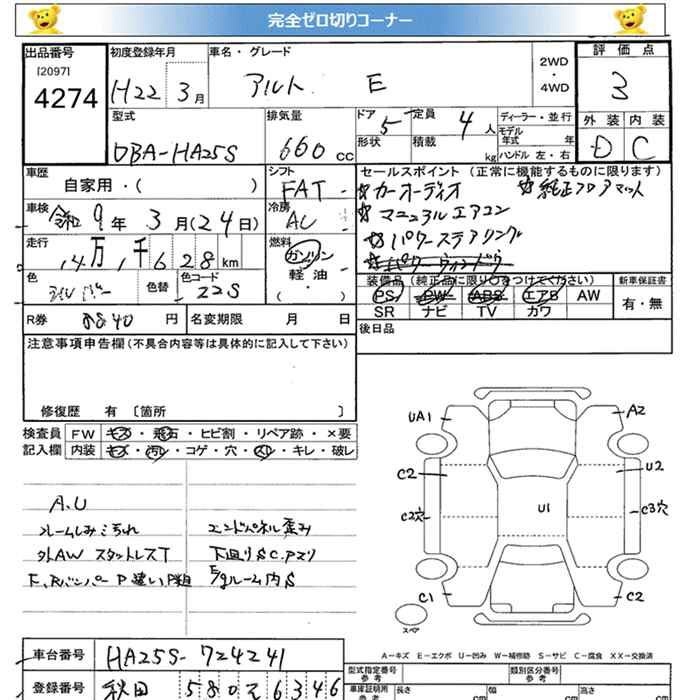 完全ゼロ切りコーナー
出品番号
[2097]
4274
初度登録年月
H22 3月
車名・グレード
アルト E
2WD
・
4WD
評価点
3
型式
DBA-HA25S
排気量
660 cc
ドア 5
形状
定員 4 人
積載 kg
ディーラー・並行
モデル年式 年
ハンドル 左・右
外装 内装
D C
車歴
自家用・( )
シフト
FAT
セールスポイント (正常に機能するものに限ります)
☆カーオーディオ ☆純正フロアマット
☆マニュアルエアコン
☆パワーステアリング
☆パワーウィンドウ
車検
令和9年3月(24日)
冷房
AC
走行
14万1千628km
燃料
ガソリン
軽油
( )
色
色替
色コード
22S
装備品 (純正品に限り○をつけてください)
PS PW ABS エアB AW
SR ナビ TV カワ
新車保証書
有・無
R券 8840 円
名変期限 月 日
後日品
注意事項申告欄(不具合内容等は具体的に記入して下さい)
修復歴 有 〔箇所 〕
検査員 FW キズ・飛石・ヒビ割・リペア跡・×要
記入欄 内装 キズ・汚レ・コゲ・穴・スレ・キレ・破レ
A.U
ルームしみ汚れ
外AW スタットレスT
F、Rバンパー P違い P粗
エンドパネル歪み
下廻りS C、Pヌリ
E/gルーム内S
UA1
A2
C2
U2
C2穴
U1
C3穴
C1
C2
スペア
A－キズ E－エクボ U－凹み W－補修跡 S－サビ C－腐食 XX－交換済
車台番号 HA25S-724241
型式指定番号
参考
類別区分番号
参考
登録番号 秋田 580 そ 6346
車庫証明用
参考
長さ cm
幅 cm
高さ cm